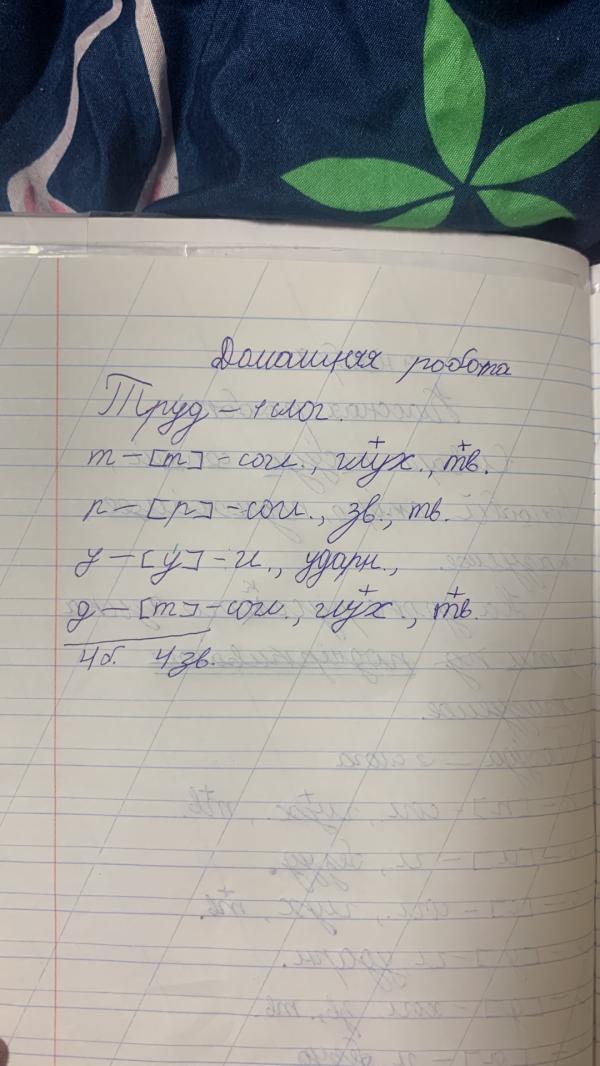 Домашняя робота
Труд – 1 слог.
т – [т] – согл., глух., тв.
р – [р] – согл., зв., тв.
у – [у́] – гл., ударн.,
д – [т] – согл., глух., тв.
4б. 4 зв.